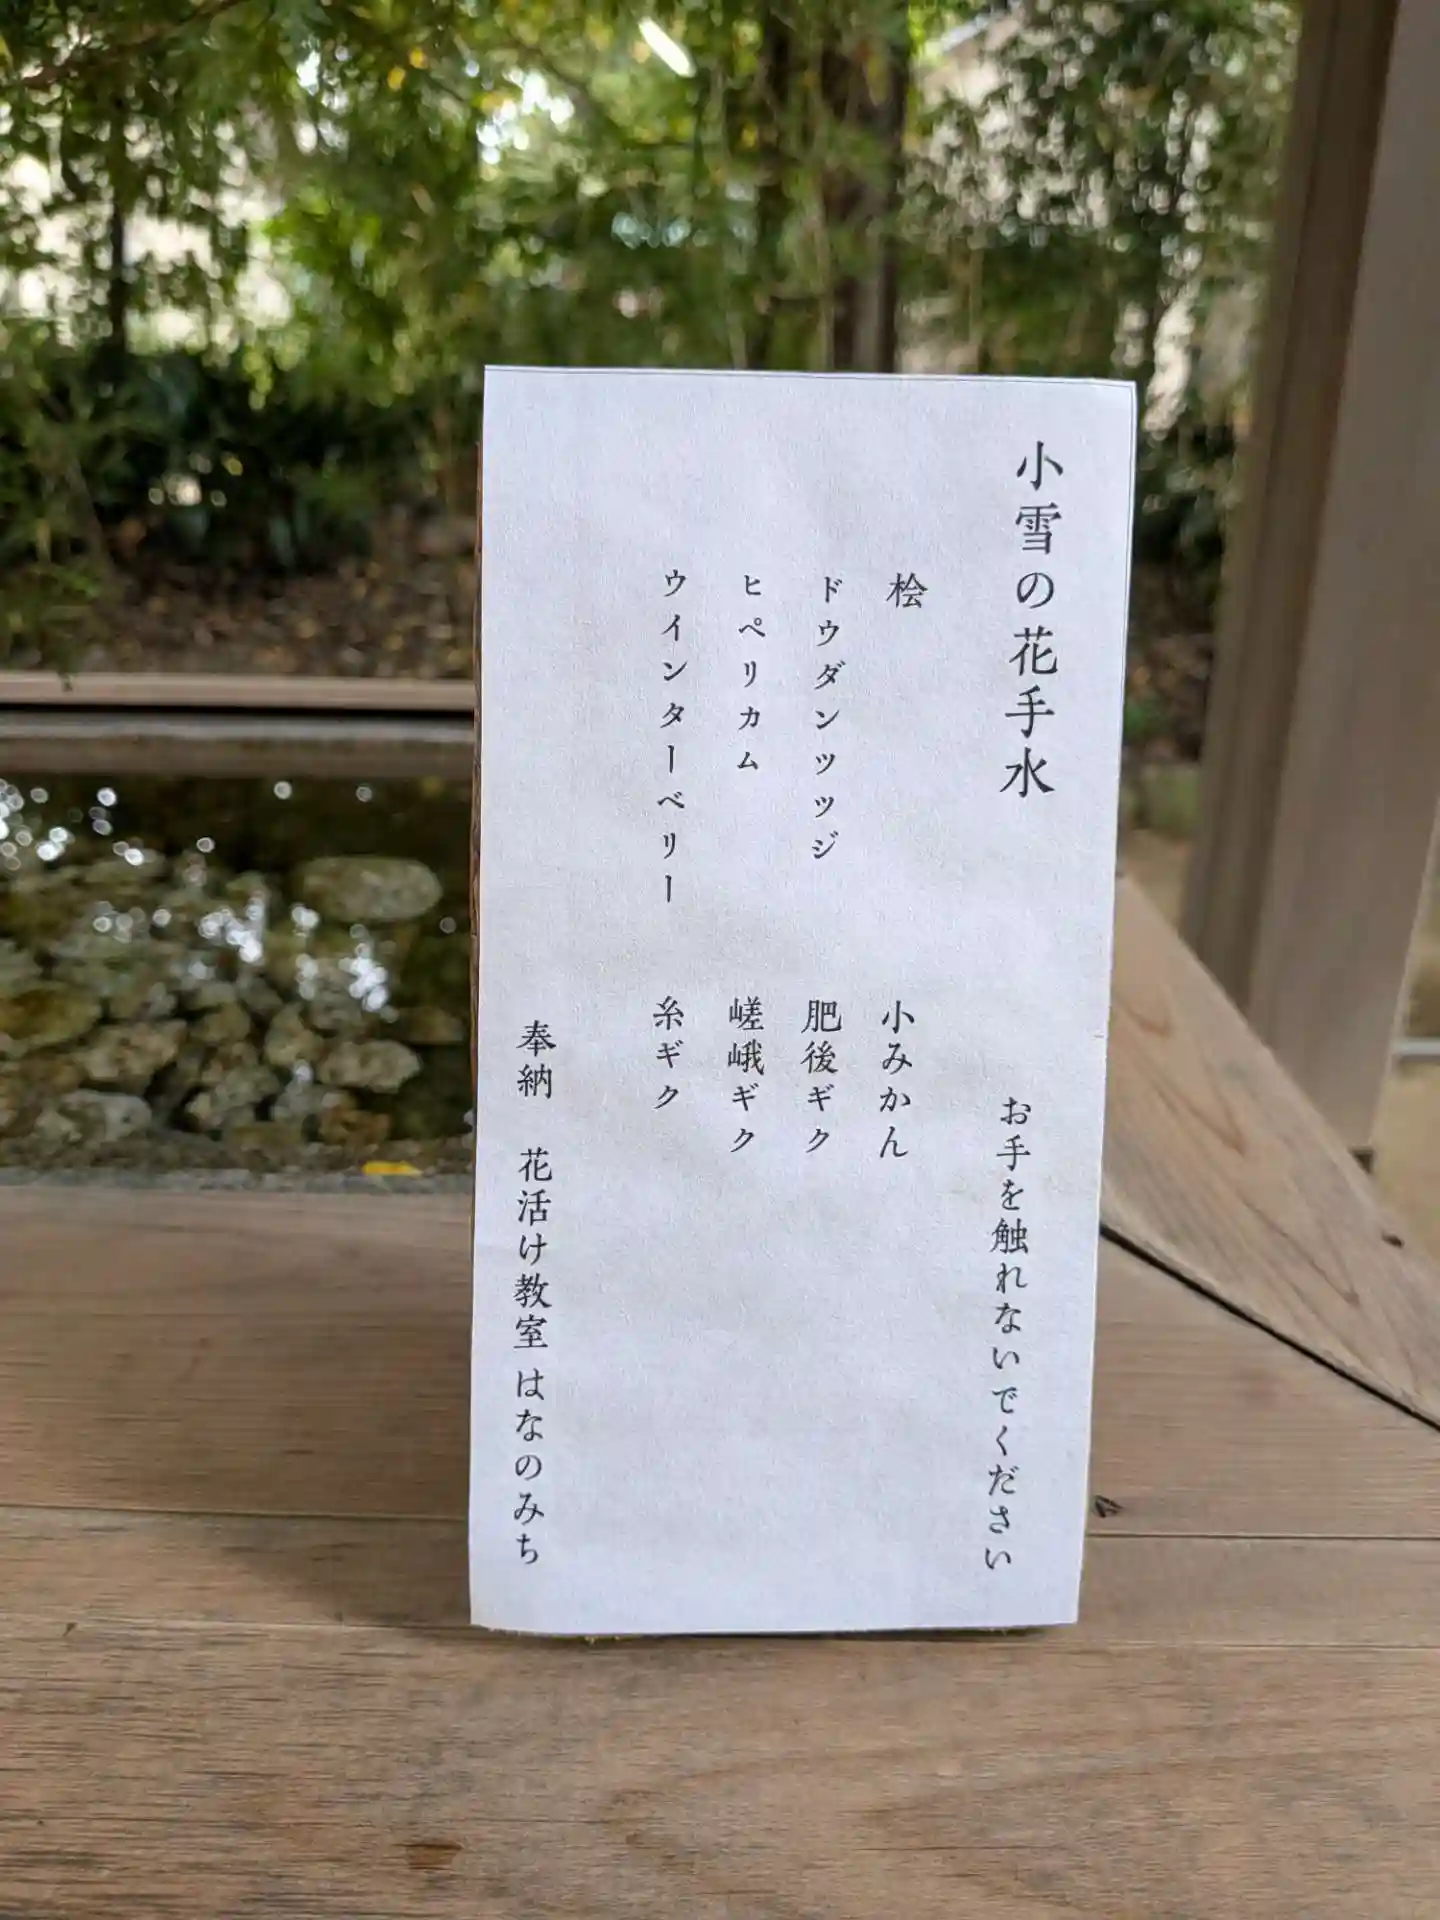 小雪の花手水
お手を触れないでください
桧
ドウダンツツジ
ヒペリカム
ウインターベリー
小みかん
肥後ギク
嵯峨ギク
糸ギク
奉納　花活け教室 はなのみち